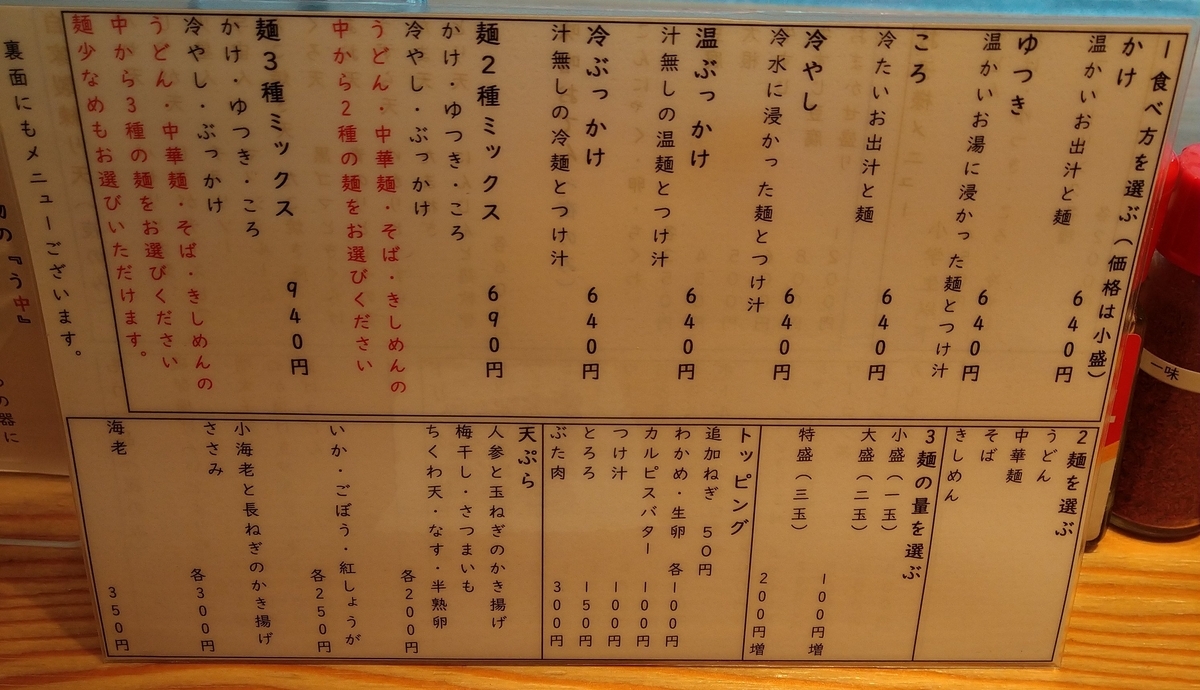 1食べ方を選ぶ(価格は小盛)
かけ 640円
温かいお出汁と麺
ゆつき 640円
温かいお湯に浸かった麺とつけ汁
ころ 640円
冷たいお出汁と麺
冷やし 640円
冷水に浸かった麺とつけ汁
温ぶっかけ 640円
汁無しの温麺とつけ汁
冷ぶっかけ 640円
汁無しの冷麺とつけ汁
麺2種ミックス 690円
かけ・ゆつき・ころ
冷やし・ぶっかけ
うどん・中華麺・そば・きしめんの
中から2種の麺をお選びください
麺3種ミックス 940円
かけ・ゆつき・ころ
冷やし・ぶっかけ
うどん・中華麺・そば・きしめんの
中から3種の麺をお選びください
麺少なめもお選びいただけます。
裏面にもメニューございます。
2麺を選ぶ
うどん
中華麺
そば
きしめん
3麺の量を選ぶ
小盛(一玉)
大盛(二玉) 100円増
特盛(三玉) 200円増
トッピング
追加ねぎ 50円
わかめ・生卵 各100円
カルピスバター 100円
つけ汁 100円
とろろ 150円
ぶた肉 300円
天ぷら
人参と玉ねぎのかき揚げ
梅干し・さつまいも
ちくわ天・なす・半熟卵
各200円
いか・ごぼう・紅しょうが
各250円
小海老と長ねぎのかき揚げ
ささみ 各300円
海老 350円
の『う中』
の器に
一味